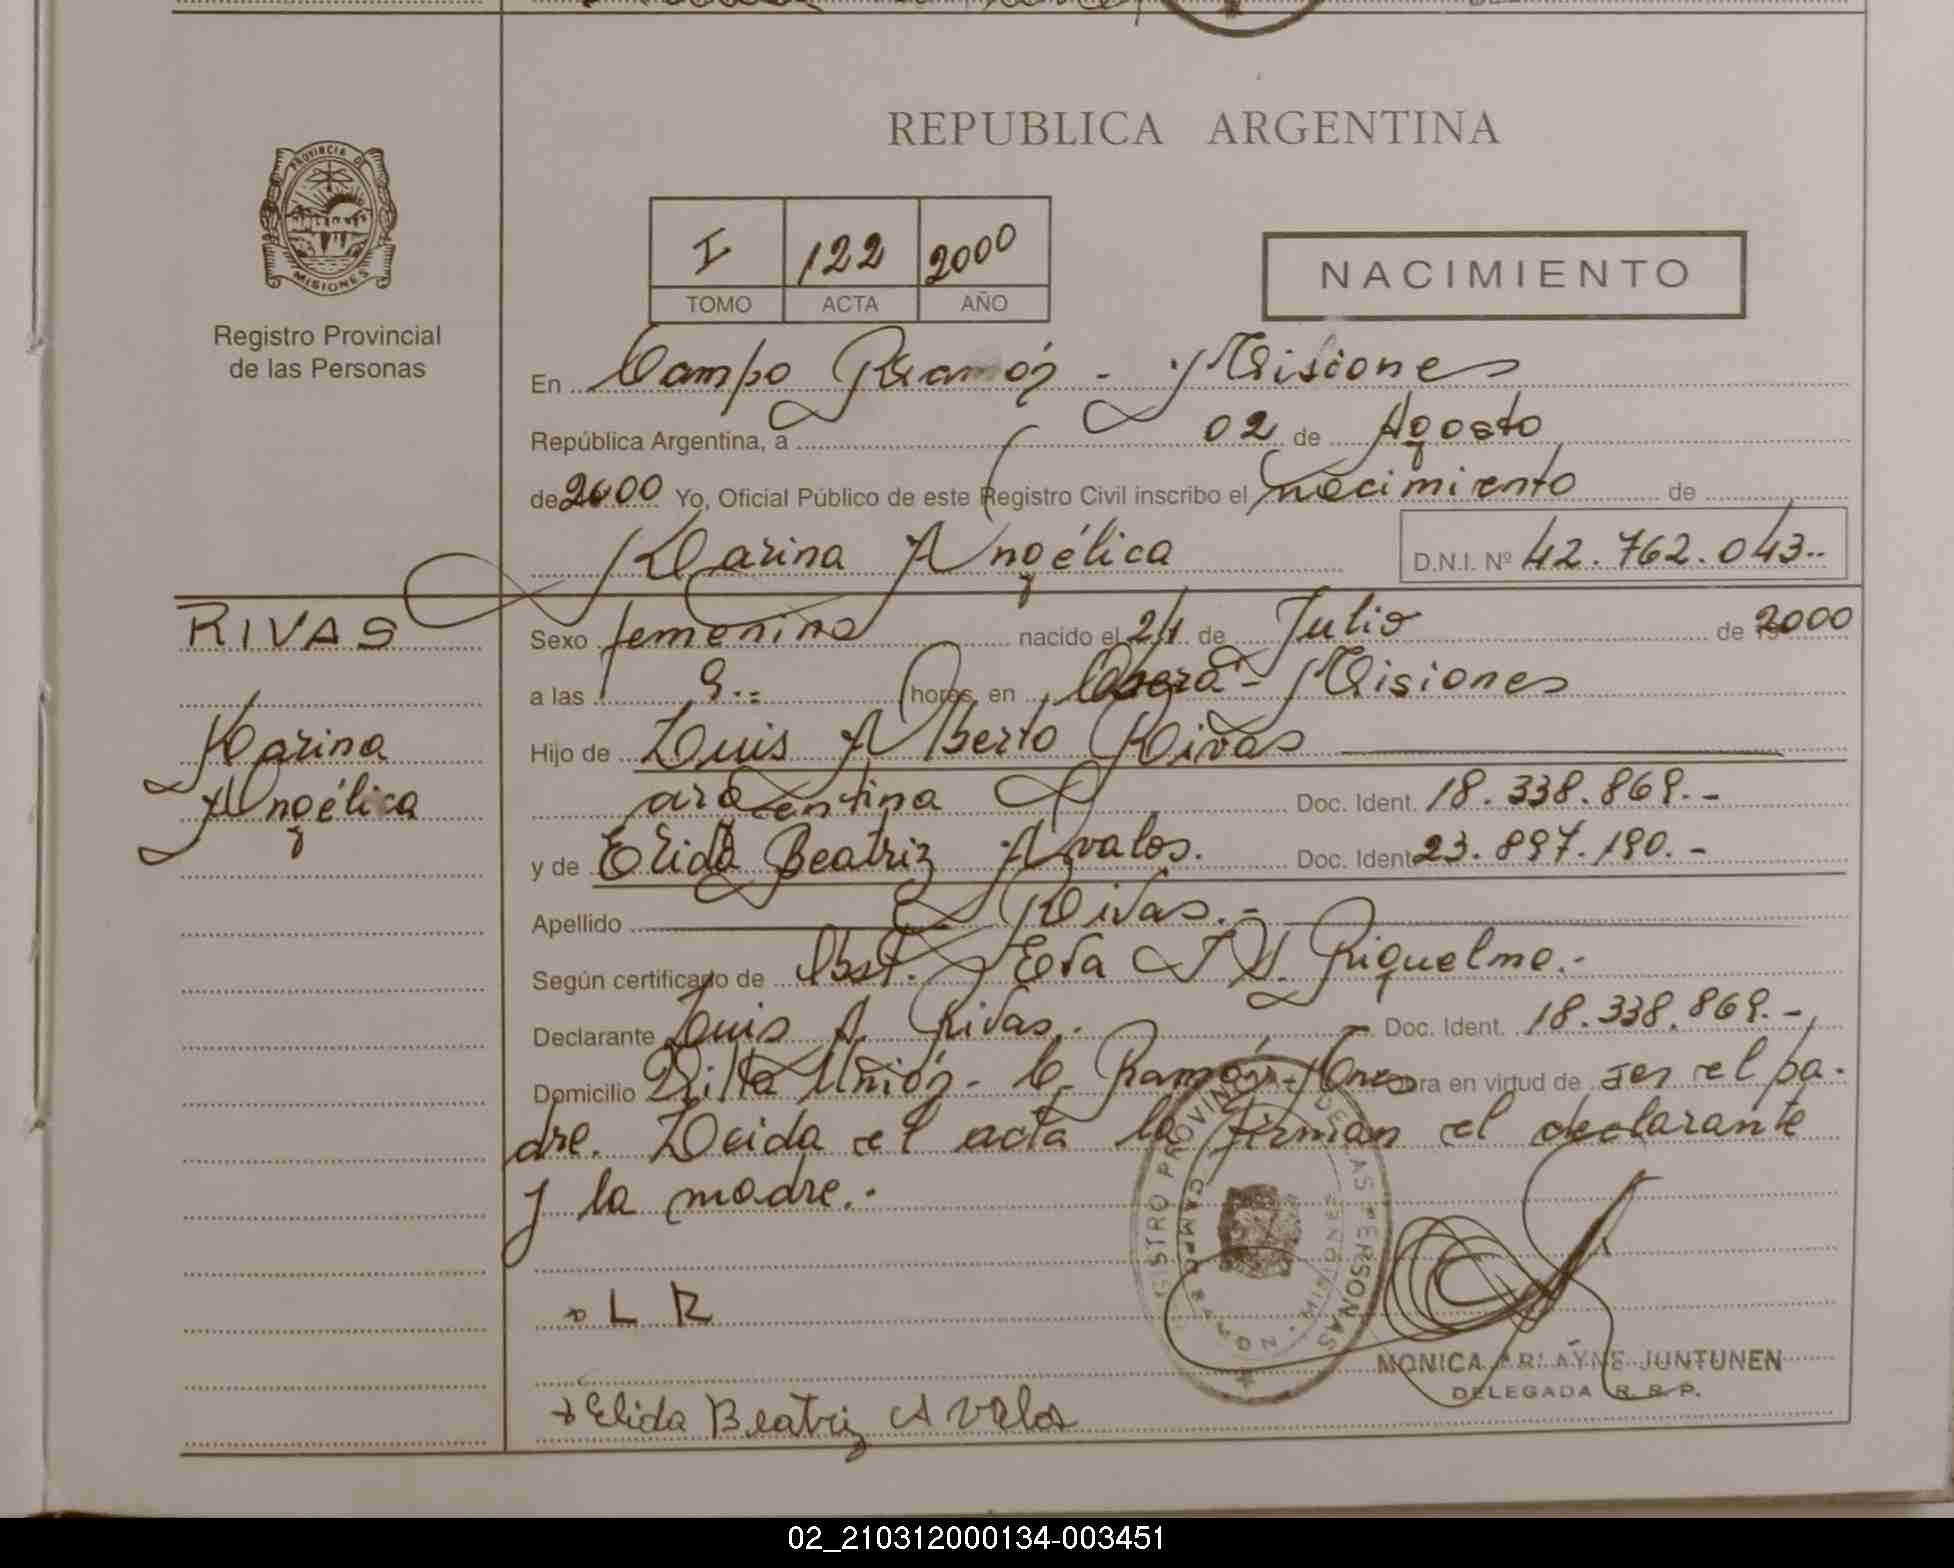 REPUBLICA ARGENTINA
PROVINCIA DE
MISIONES
Registro Provincial
de las Personas
I 122 2000
TOMO ACTA AÑO
NACIMIENTO
En Campo Ramón - Misiones
República Argentina, a 02 de Agosto
de 2000 Yo, Oficial Público de este Registro Civil inscribo el nacimiento de
Karina Angélica D.N.I. Nº 42.762.043..
RIVAS
Karina
Angélica
Sexo femenino nacido el 21 de Julio de 2000
a las 9.. horas, en Oberá - Misiones
Hijo de Luis Alberto Rivas
argentina Doc. Ident. 18.338.869.-
y de Elida Beatriz Avalos. Doc. Ident. 23.897.190.-
Apellido Rivas.-
Según certificado de Obst. Eva Riquelme.-
Declarante Luis A. Rivas. Doc. Ident. 18.338.869.-
Domicilio Villa Unión - C. Ramón - Mnes obra en virtud de ser el pa-
dre. Leida el acta la firman el declarante
y la madre.-
L R
Elida Beatriz Avalos
REGISTRO PROVINCIAL DE LAS PERSONAS
CAMPO RAMON - MISIONES
MONICA ARLAYNE JUNTUNEN
DELEGADA R.P.P.
02_210312000134-003451